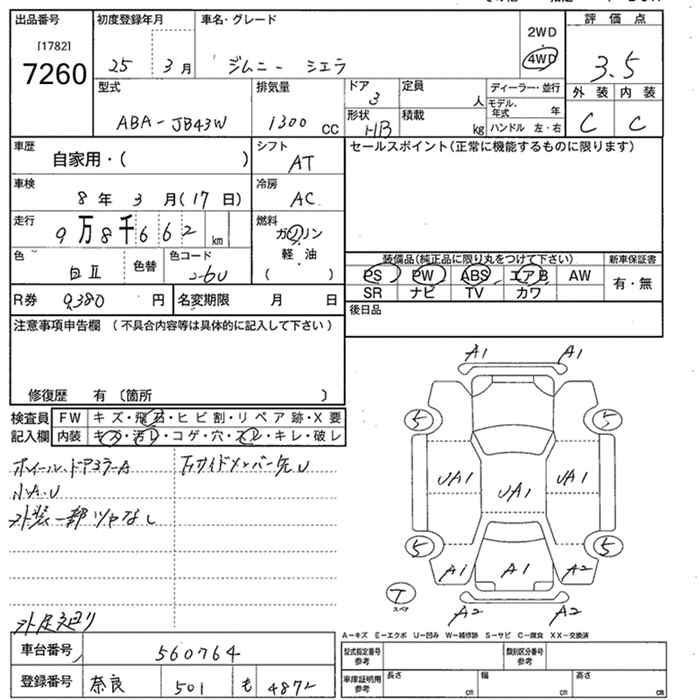 出品番号 初度登録年月 車名・グレード 2WD 評価点
[1782] 4WD
7260 25 3月 ジムニー シエラ 3.5
型式 排気量 ドア 3 定員 人 ディーラー・並行 外装 内装
モデル年式 年
ABA-JB43W 1300 CC 形状 HB 積載 kg ハンドル 左・右 C C
車歴 自家用・( ) シフト AT セールスポイント(正常に機能するものに限ります)
車検 8年 3月(17日) 冷房 AC
走行 9万8千662 km 燃料 ガソリン
軽油
( )
色 白II 色替 色コード 26U 装備品(純正品に限り丸をつけて下さい) 新車保証書
PS PW ABS エアB AW 有・無
R券 9,380 円 名変期限 月 日 SR ナビ TV カワ
注意事項申告欄 (不具合内容等は具体的に記入して下さい) 後日品
修復歴 有 (箇所 )
検査員 FW キズ・飛石・ヒビ割・リペア跡・X要
記入欄 内装 キズ・汚レ・コゲ・穴・スレ・キレ・破レ
ホイール、ドアミラーA 下サイドメンバー先U
小A.U
外装一部ツヤなし
A1 A1
5 5
UA1 UA1 UA1
5 5
A1 A1 A2
T
スペア
A2 A2
A-キズ E-エクボ U-凹み W-補修跡 S-サビ C-腐食 XX-交換済
車台番号 560764 型式指定番号 参考 類別区分番号 参考
登録番号 奈良 501 も 4872 車庫証明用 参考 長さ cm 幅 cm 高さ cm